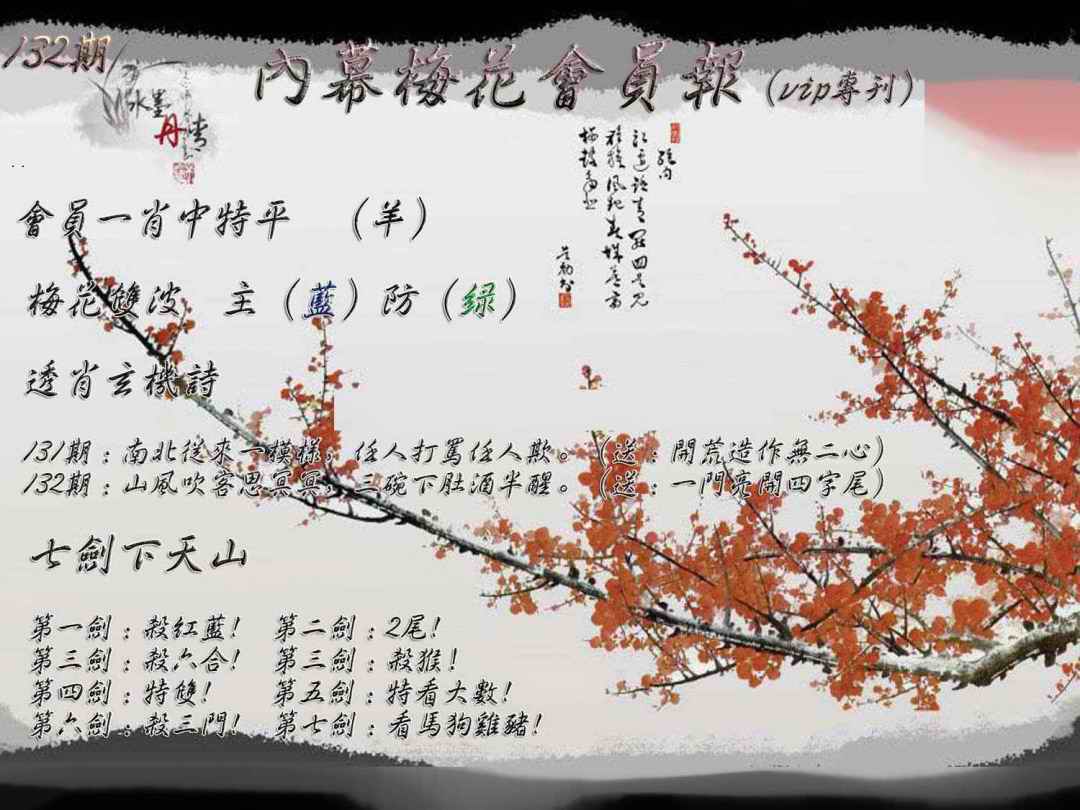 132期
內幕梅花會員報（vip專刊）
水墨
丹青
會員一肖中特平　（羊）
梅花雙波　主（藍）防（绿）
透肖玄機詩
131期：南北從來一模樣，任人打罵任人欺。（送：開荒造作無二心）
132期：山風吹客思冥冥，三碗下肚酒半醒。（送：一門亮開四字尾）
七劍下天山
第一劍：殺紅藍！　第二劍：2尾！
第三劍：殺六合！　第三劍：殺猴！
第四劍：特雙！　第五劍：特看大數！
第六劍：殺三門！　第七劍：看馬狗雞豬！